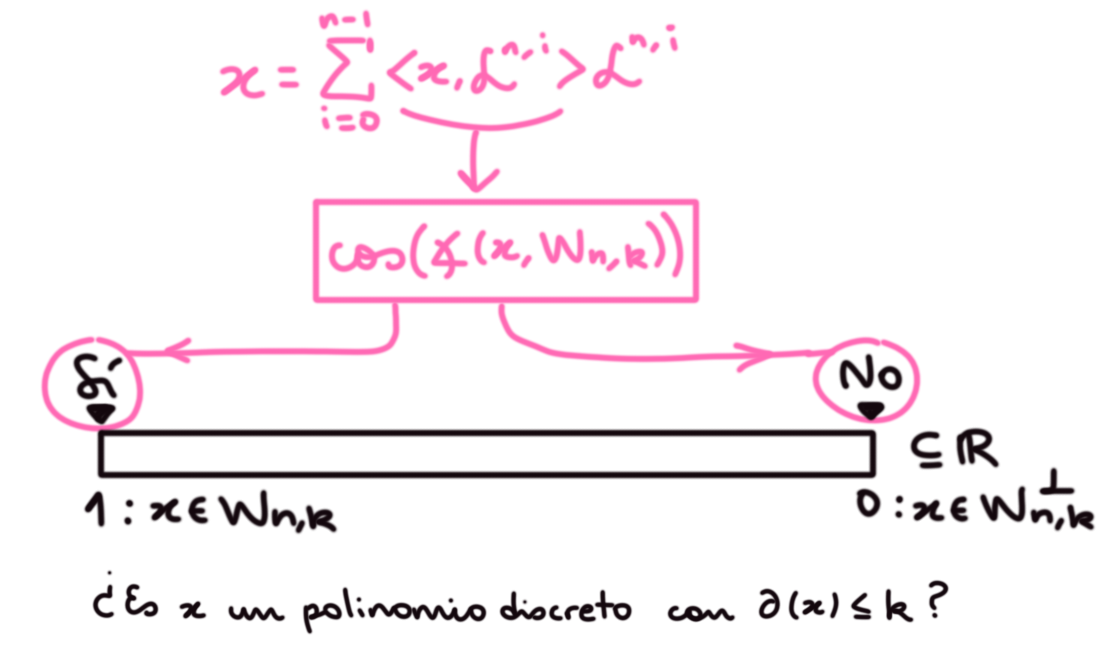 x = \sum_{i=0}^{n-1} <x, \mathcal{L}^{n,i}> \mathcal{L}^{n,i}
cos(∡(x, W_{n,k}))
Sí No
⊆ ℝ
1 : x ∈ W_{n,k} 0 : x ∈ W_{n,k}^⊥
¿Es x un polinomio discreto con ∂(x) ≤ k?